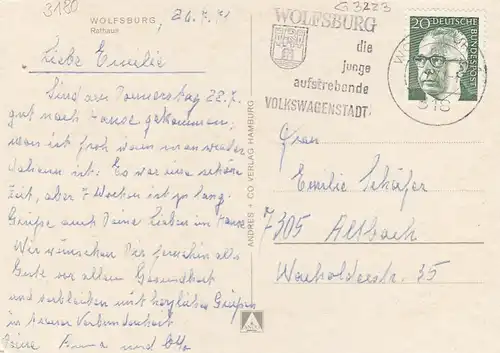 3180
G 3223
WOLFSBURG
Rathaus
26.7.71
Liebe Emilie
Sind am Donnerstag 22.7.
gut nach Hause gekommen,
man ist froh wenn man wieder
daheim ist. Es war eine schöne
Zeit, aber 7 Wochen ist zu lang.
Grüße auch Deine Lieben im Hause
Wir wünschen Dir fernerhin alles
Gute vor allem Gesundheit
und verbleiben mit herzlichen Grüßen
in treuer Verbundenheit
Deine Anna und Otto
ANDRES + CO VERLAG HAMBURG
WOLFSBURG
die
junge
aufstrebende
VOLKSWAGENSTADT
20 DEUTSCHE
BUNDESPOST
318
Frau
Emilie Schäfer
7305 Altbach
Wacholderstr. 35